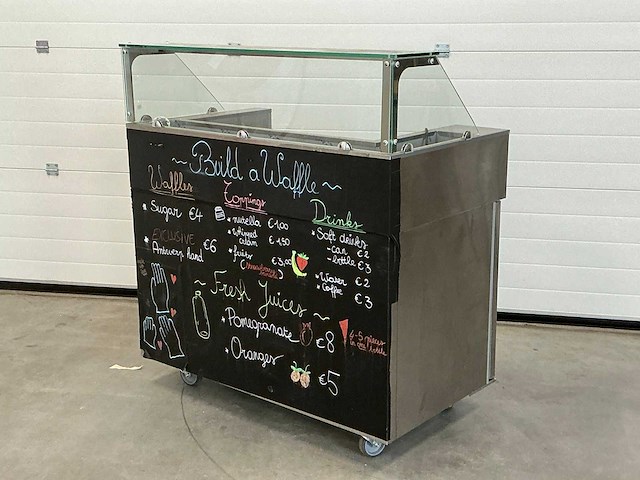 ~ Build a Waffle ~
Waffles
* Sugar €4
EXCLUSIVE
* Antwerp hand €6
Toppings
* nutella €1,00
* whipped cream €1,50
* fruits €3,00
Drinks
* Soft drinks
-can €2
-bottle €3
* Water €2
* Coffee €3
~ Fresh Juices ~
* Pomegranate €8
4-5 pieces
* Oranges €5